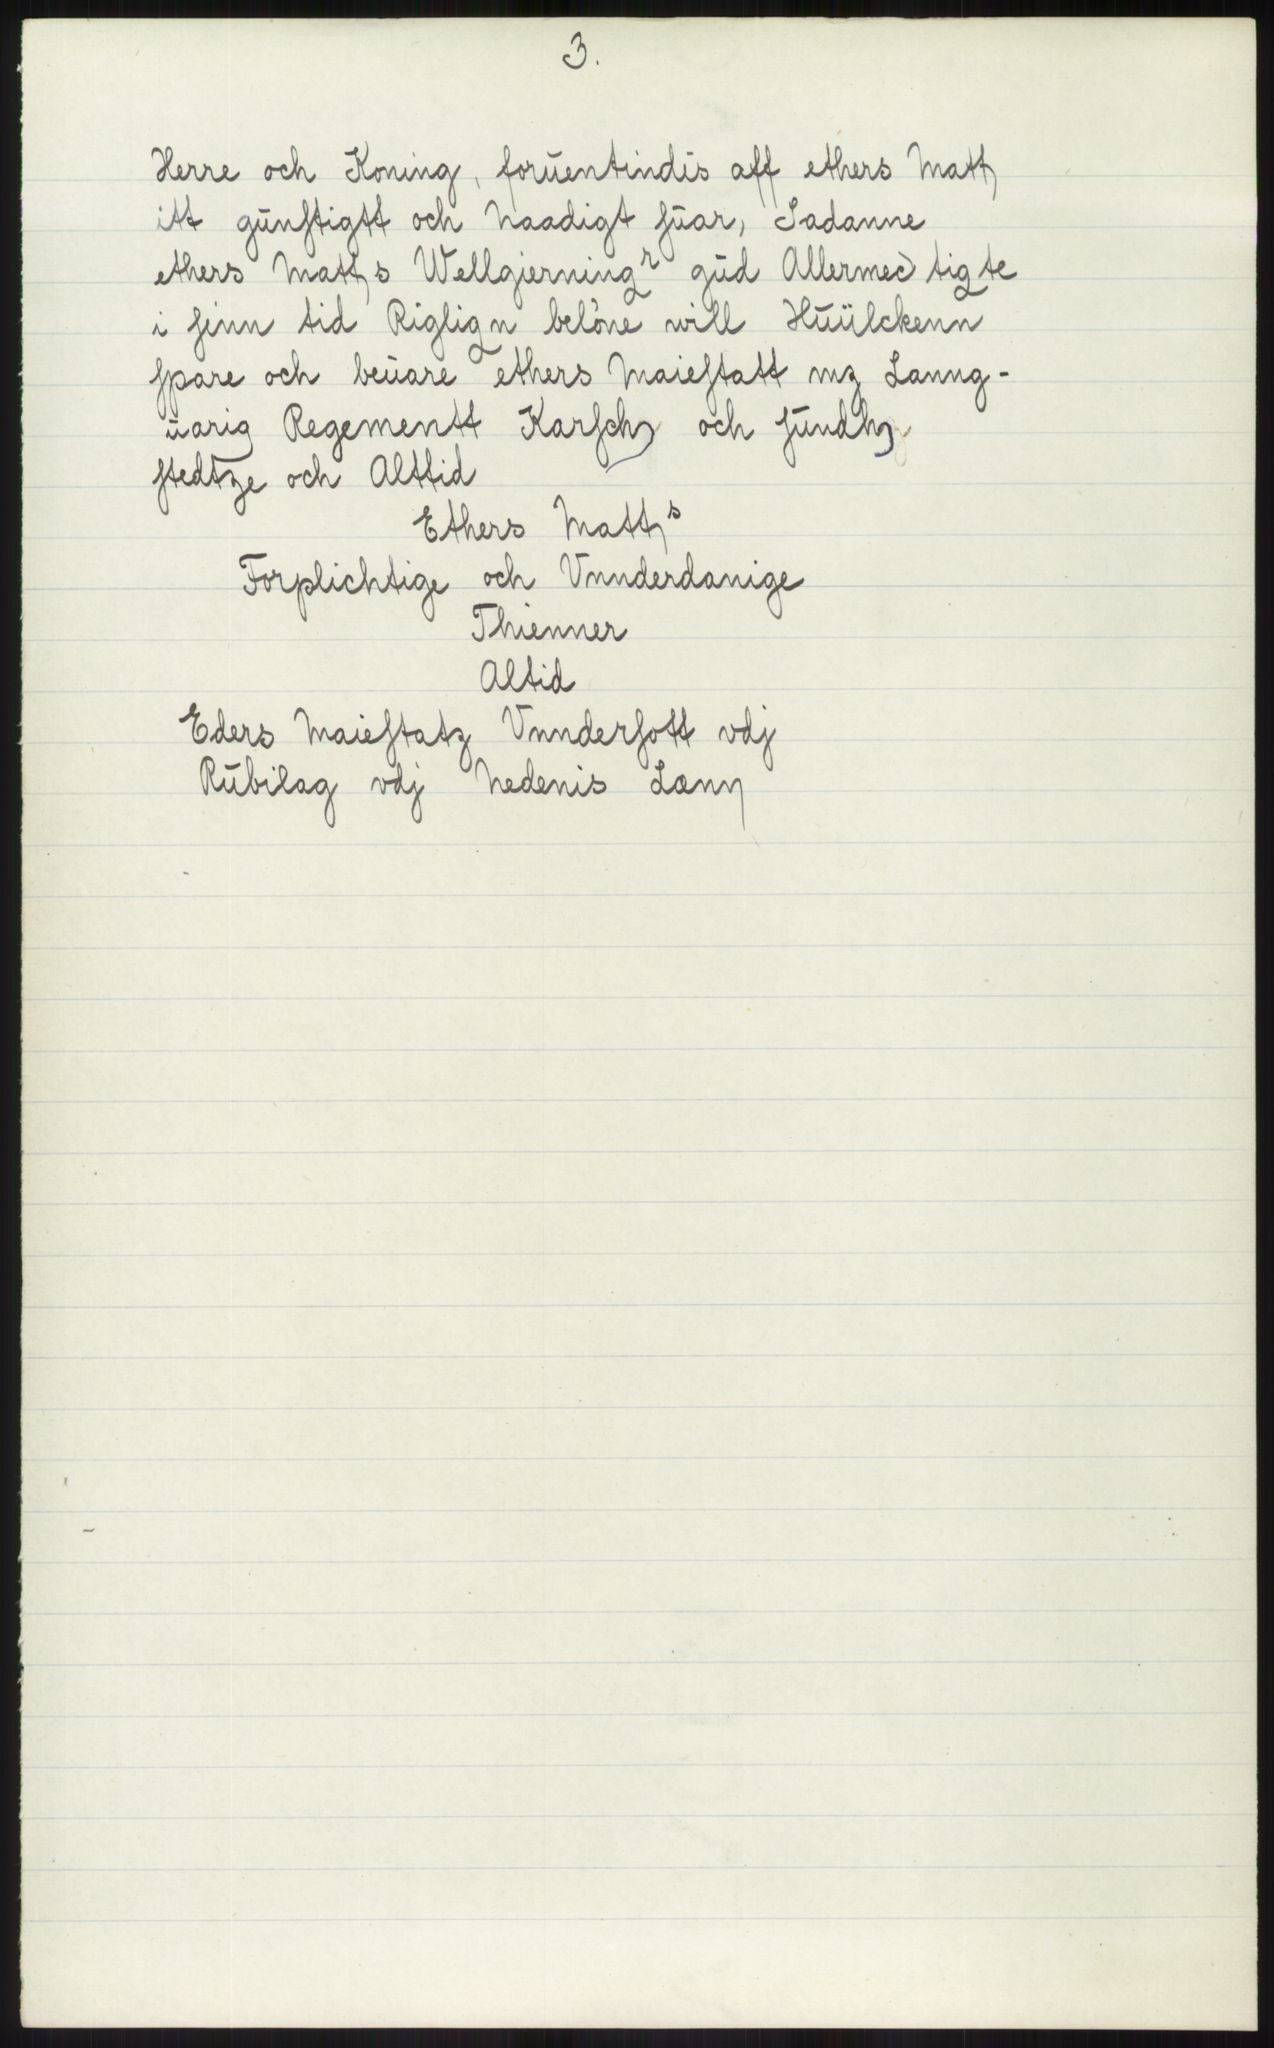 3.
Herre och Koning, forŭentindis aff ethers Matt
itt gŭnstigtt och Naadigt sŭar, Sadanne
ethers Matts Wellgierningr gŭd Allermectigte
i sinn tid Riglign beløne will Hŭŭlckenn
spare och beŭare ethers Maiestatt mz Lanng-
ŭarig Regementt Karsch och sŭndh
stedtze och Alttid
Ethers Matts
Forplichtige och Vnnderdanige
Thienner
Altid
Eders Maiestatz Vnndersott vdj
Rŭbilag vdj Nedenis Lænn